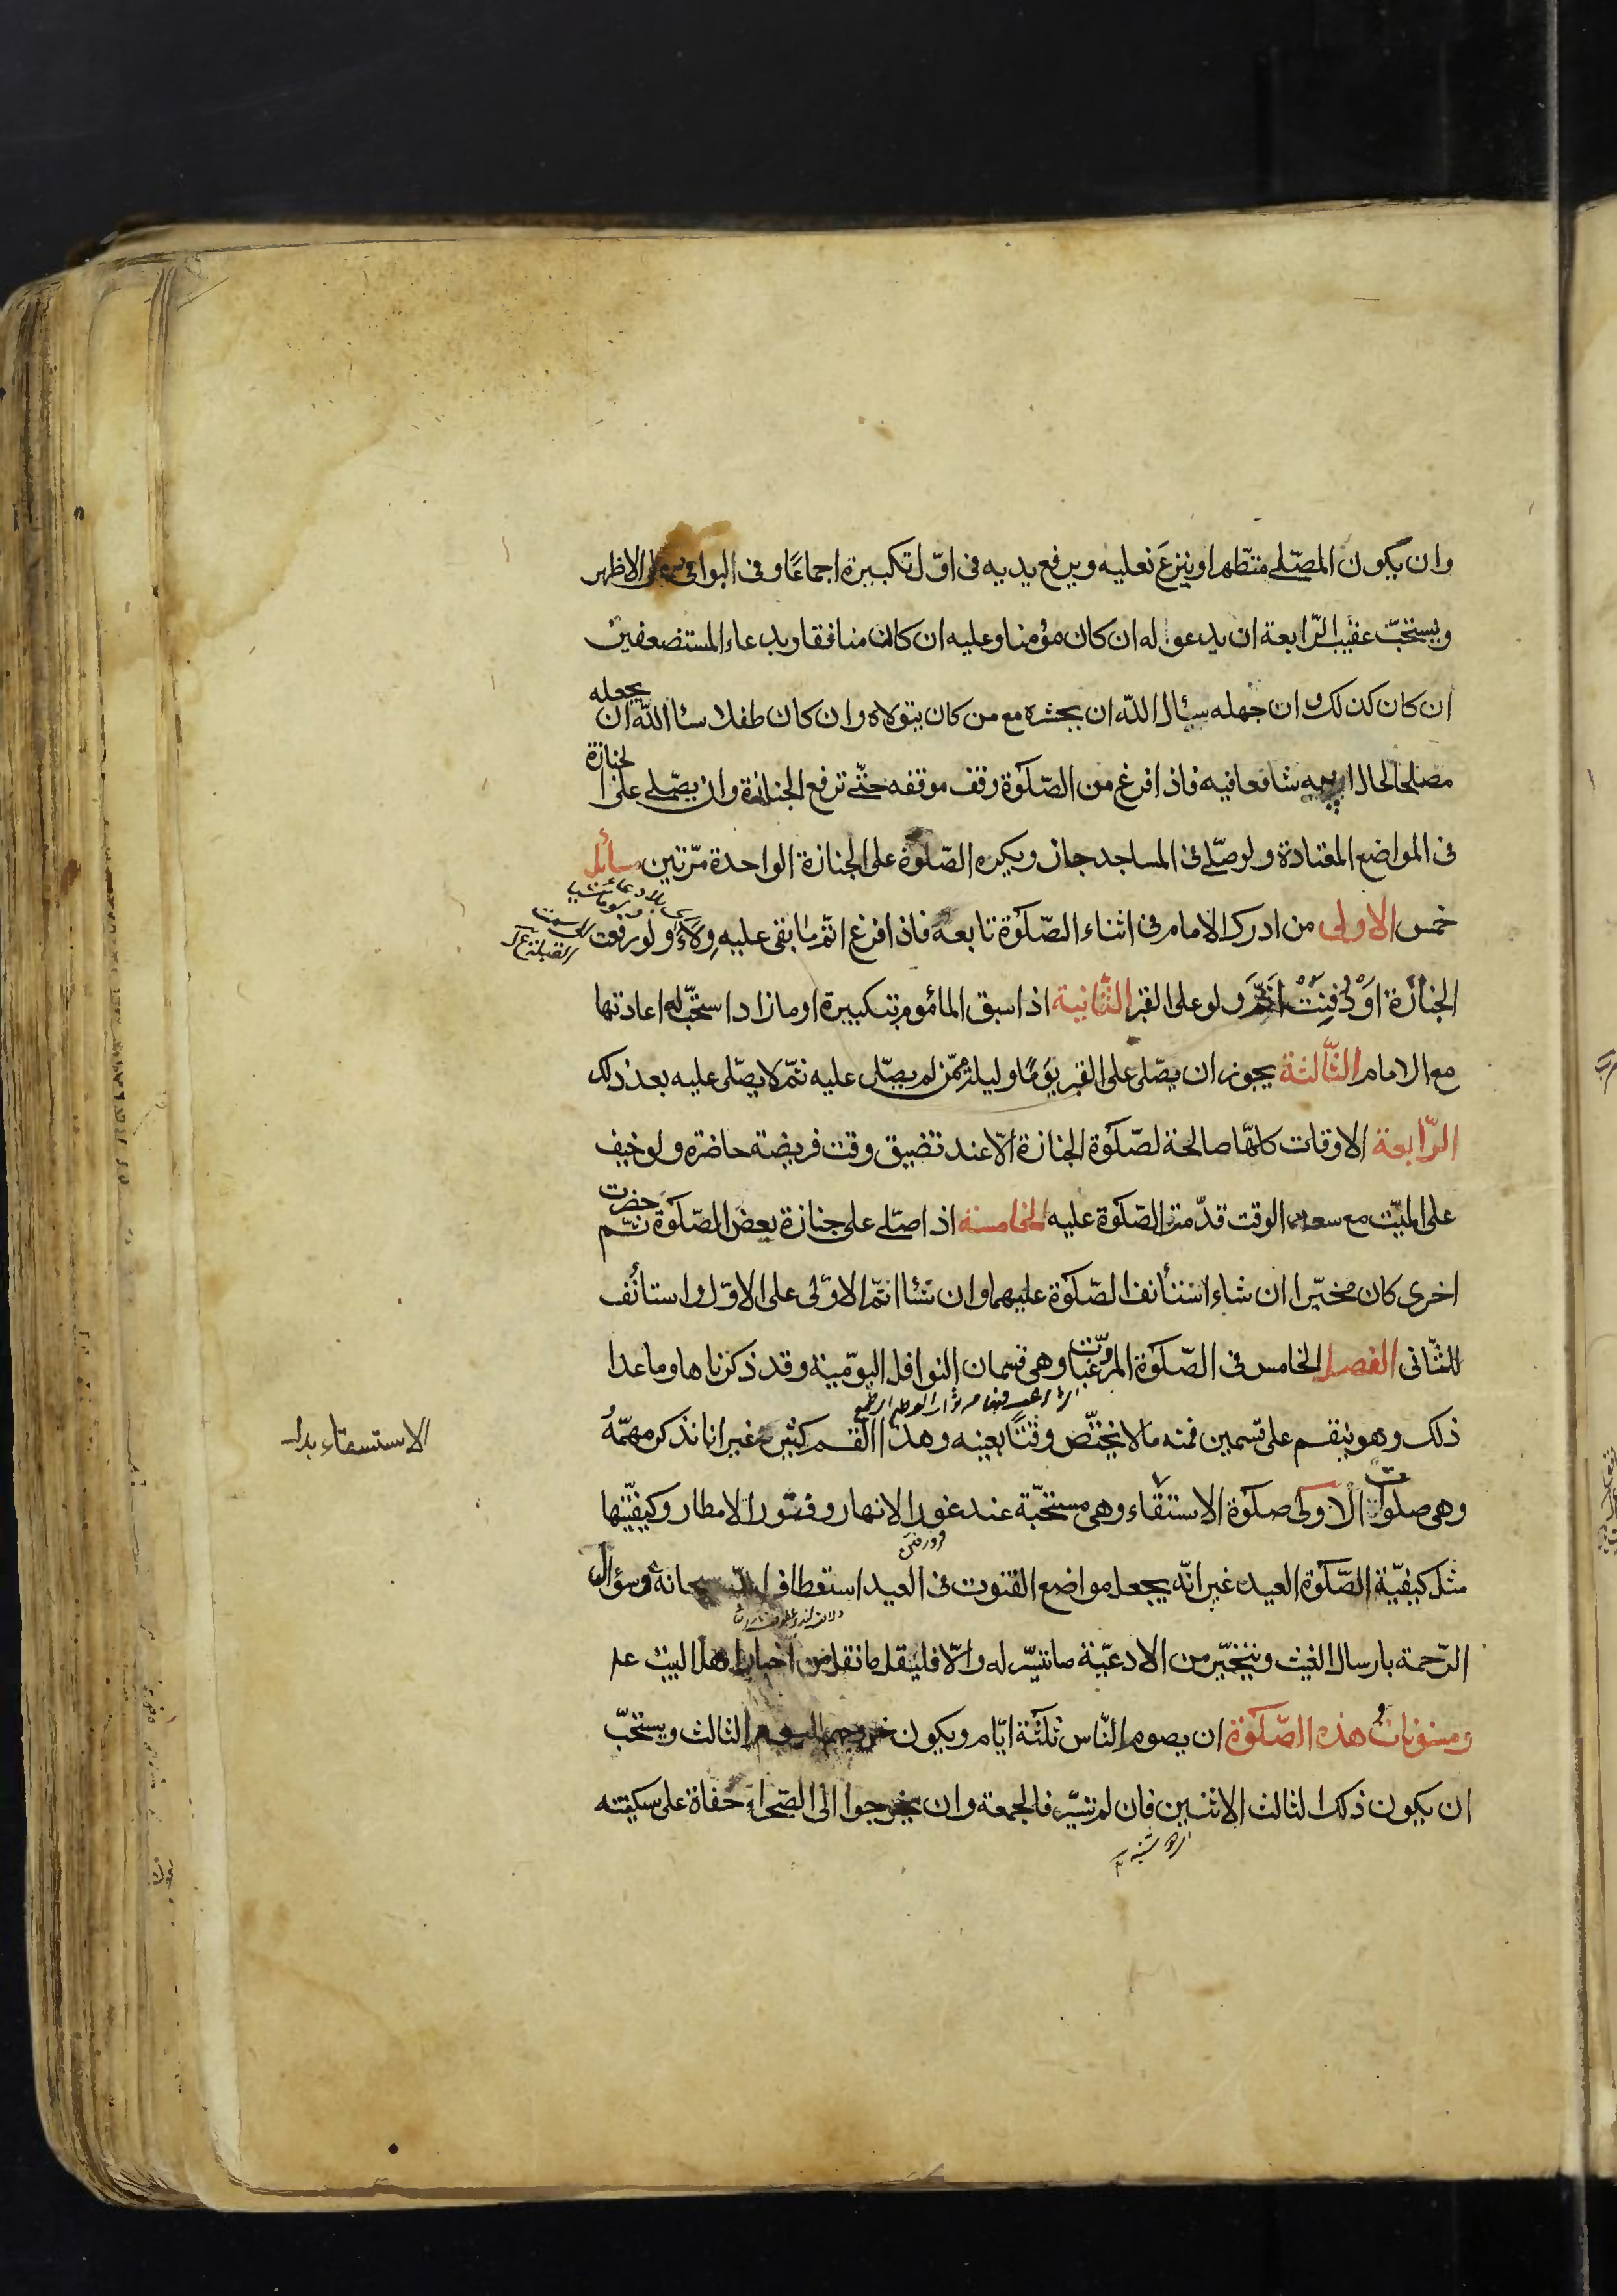 وان يكون المصّلے متطّهرا وينزعَ نعليه ويرفع يديه فى اوّل تكبيرة اجماعًا وفى البواقى على الاظهر
ويستحّب عقيب الرّابعة ان يدعو له ان كان مؤمنا وعليه ان كان منافقا وبدعاء المستضعفين
ان كان كذلك وان جهله سئال اللّه ان يحشره مع من كان يتولاه وان كان طفلا سئا اللّه ان يجعله
مصلحا لحال ابيه شافعا فيه فاذا فرغ من الصّلوة وقف موقفه حتّے ترفع الجنازة وان يصّلے على الجنازة
فى المواضع المعتادة ولو صلّے فى المساجد جاز ويكره الصّلوة على الجنازة الواحدة مرّتين مسائل
خمس الاولى من ادرك الامام فى اثناء الصّلوة تابعه فاذا فرغ اتمّ ما بقى عليه وِلاءً ولو رفعت
الجنازة اوْ دُفِنَتْ اتمّ ولو على القبر الثّانية اذا سبق المأموم بتكبيرة او مازاد استحّب له اعادتها
مع الامام الثّالثة يجوز ان يصّلى على القبر يَومًا وليلة ممّن لم يصّلى عليه ثمّ لا يصّلى عليه بعد ذلك
الرّابعة الاوقات كلّها صالحة لصّلوة الجنازة الّا عند تضييق وقت فريضة حاضره ولو خيف
على الميّت مع سعة الوقت قدّمت الصّلوة عليه الخامسة اذا صلّے على جنازة بعض الصّلوة ثمّ حضرت
اخرى كان مخيّرا ان شاء استأنف الصّلوة عليهما وان شئا اتمّ الاوّلى على الاوّل واستأنف
للثّانى الفصل الخامس فى الصّلوة المرغّبات وهى قسمان النوافل اليوّمية وقد ذكرناها وما عدا
ذلك وهو ينقسم على قسمين فمنه ما لا يختّص وقتًا بعينه وهذا القسم كثيرة غير انا نذكر مهمّه
الاستسقاء بدار
وهى صلوات الاولى صلوة الاستسقاء وهى مستحّبة عند غور الانهار وفتور الامطار وكيفيّتها
مثل كيفيّة الصّلوة العيد غير انّه يجعل مواضع القنوت فى العيد استعطاف اللّه سبحانه وسؤال
الرّحمة بارسال الغيث ويتخيّر من الادعيّة ما تيسّر له والّا فليقل ما نقل من اخبار اهل البيت ع
ومسنونات هذه الصّلوة ان يصوم النّاس ثلثة ايّام ويكون خروجهم اليوم الثالث ويستحّب
ان يكون ذلك الثالث الاثنين فان لم تيسّر فالجمعة وان يخرجوا الى الصّحراء حفاة على سكينته